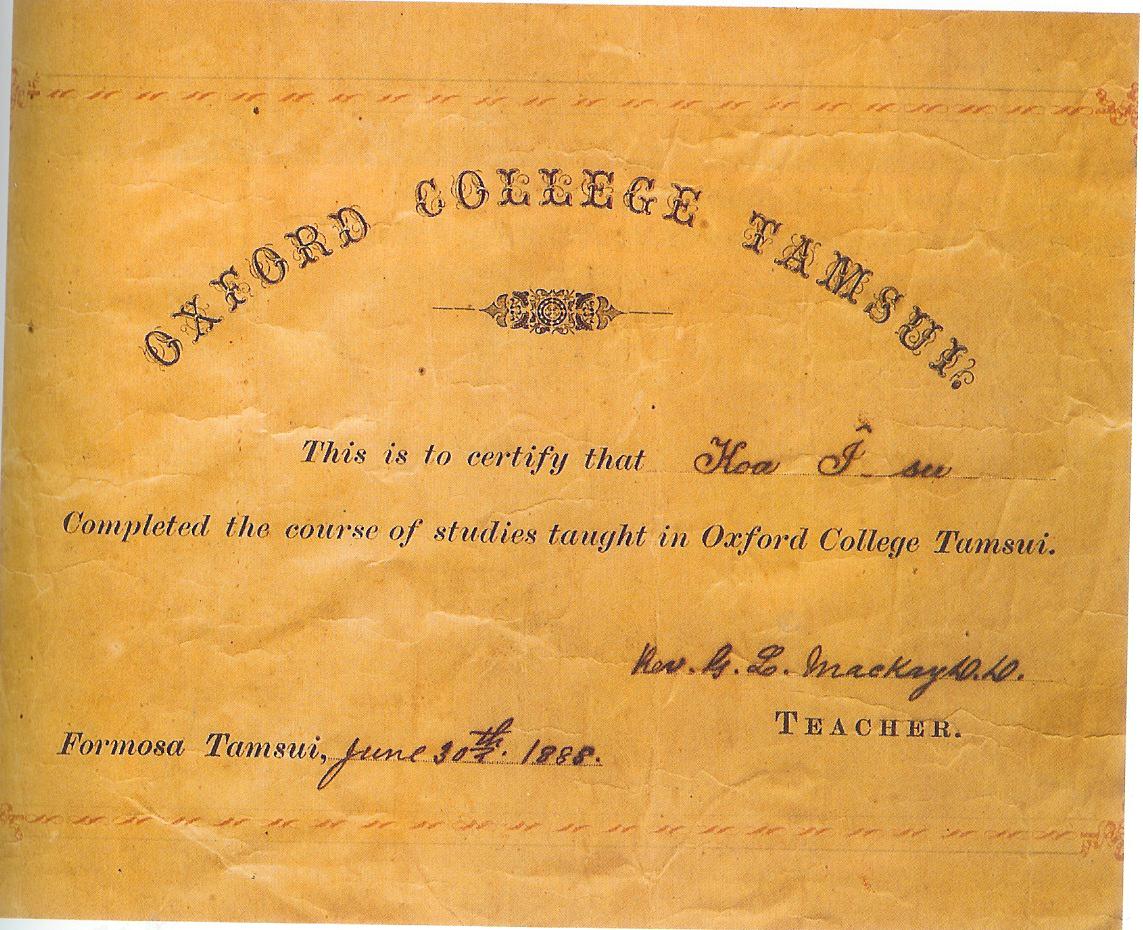 OXFORD COLLEGE TAMSUI.
This is to certify that Koa Î-su
Completed the course of studies taught in Oxford College Tamsui.
Rev. G. L. Mackay D.D.
TEACHER.
Formosa Tamsui, June 30th. 1888.